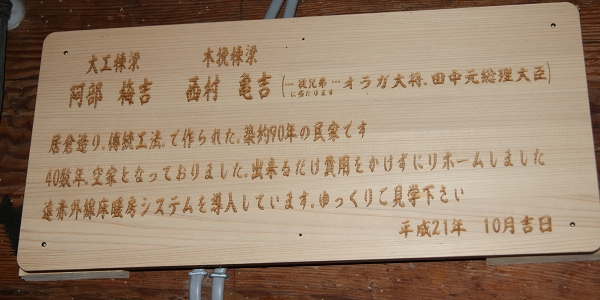 大工棟梁 木挽棟梁
阿部 梅吉 西村 亀吉(…従兄弟…オラガ大将、田中元総理大臣)
に当たります
居倉造り、傳統工法、で作られた、築約90年の民家です
40数年、空家となっておりました、出来るだけ費用をかけずにリホームしました
遠赤外線床暖房システムを導入しています、ゆっくりご見学下さい
平成21年 10月吉日